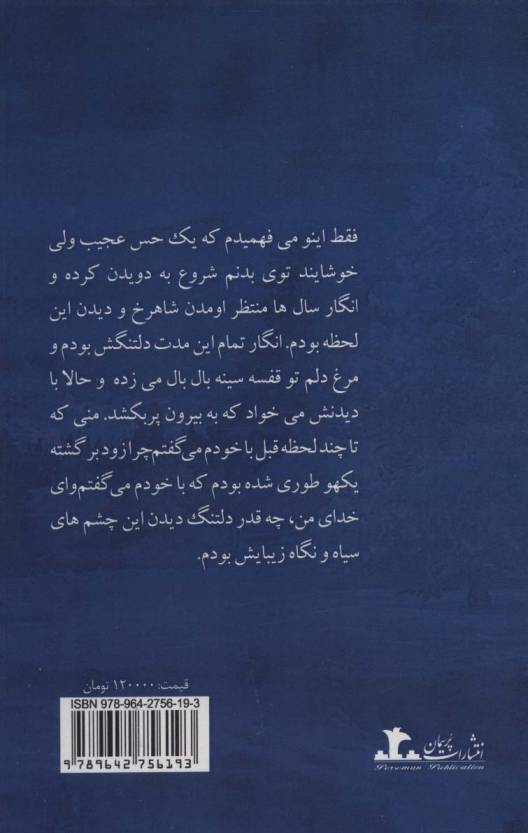 فقط اینو می فهمیدم که یک حس عجیب ولی
خوشایند توی بدنم شروع به دویدن کرده و
انگار سال ها منتظر اومدن شاهرخ و دیدن این
لحظه بودم. انگار تمام این مدت دلتنگش بودم و
مرغ دلم تو قفسه سینه بال بال می زده و حالا با
دیدنش می خواد که به بیرون پربکشد. منی که
تا چند لحظه قبل با خودم می‌گفتم چرا زود برگشته
یکهو طوری شده بودم که با خودم می‌گفتم وای
خدای من، چه قدر دلتنگ دیدن این چشم های
سیاه و نگاه زیبایش بودم.
قیمت: ۱۲۰۰۰۰ تومان
ISBN 978-964-2756-19-3
9 789642 756193
انتشارات پُرسمان
Porseman Publication